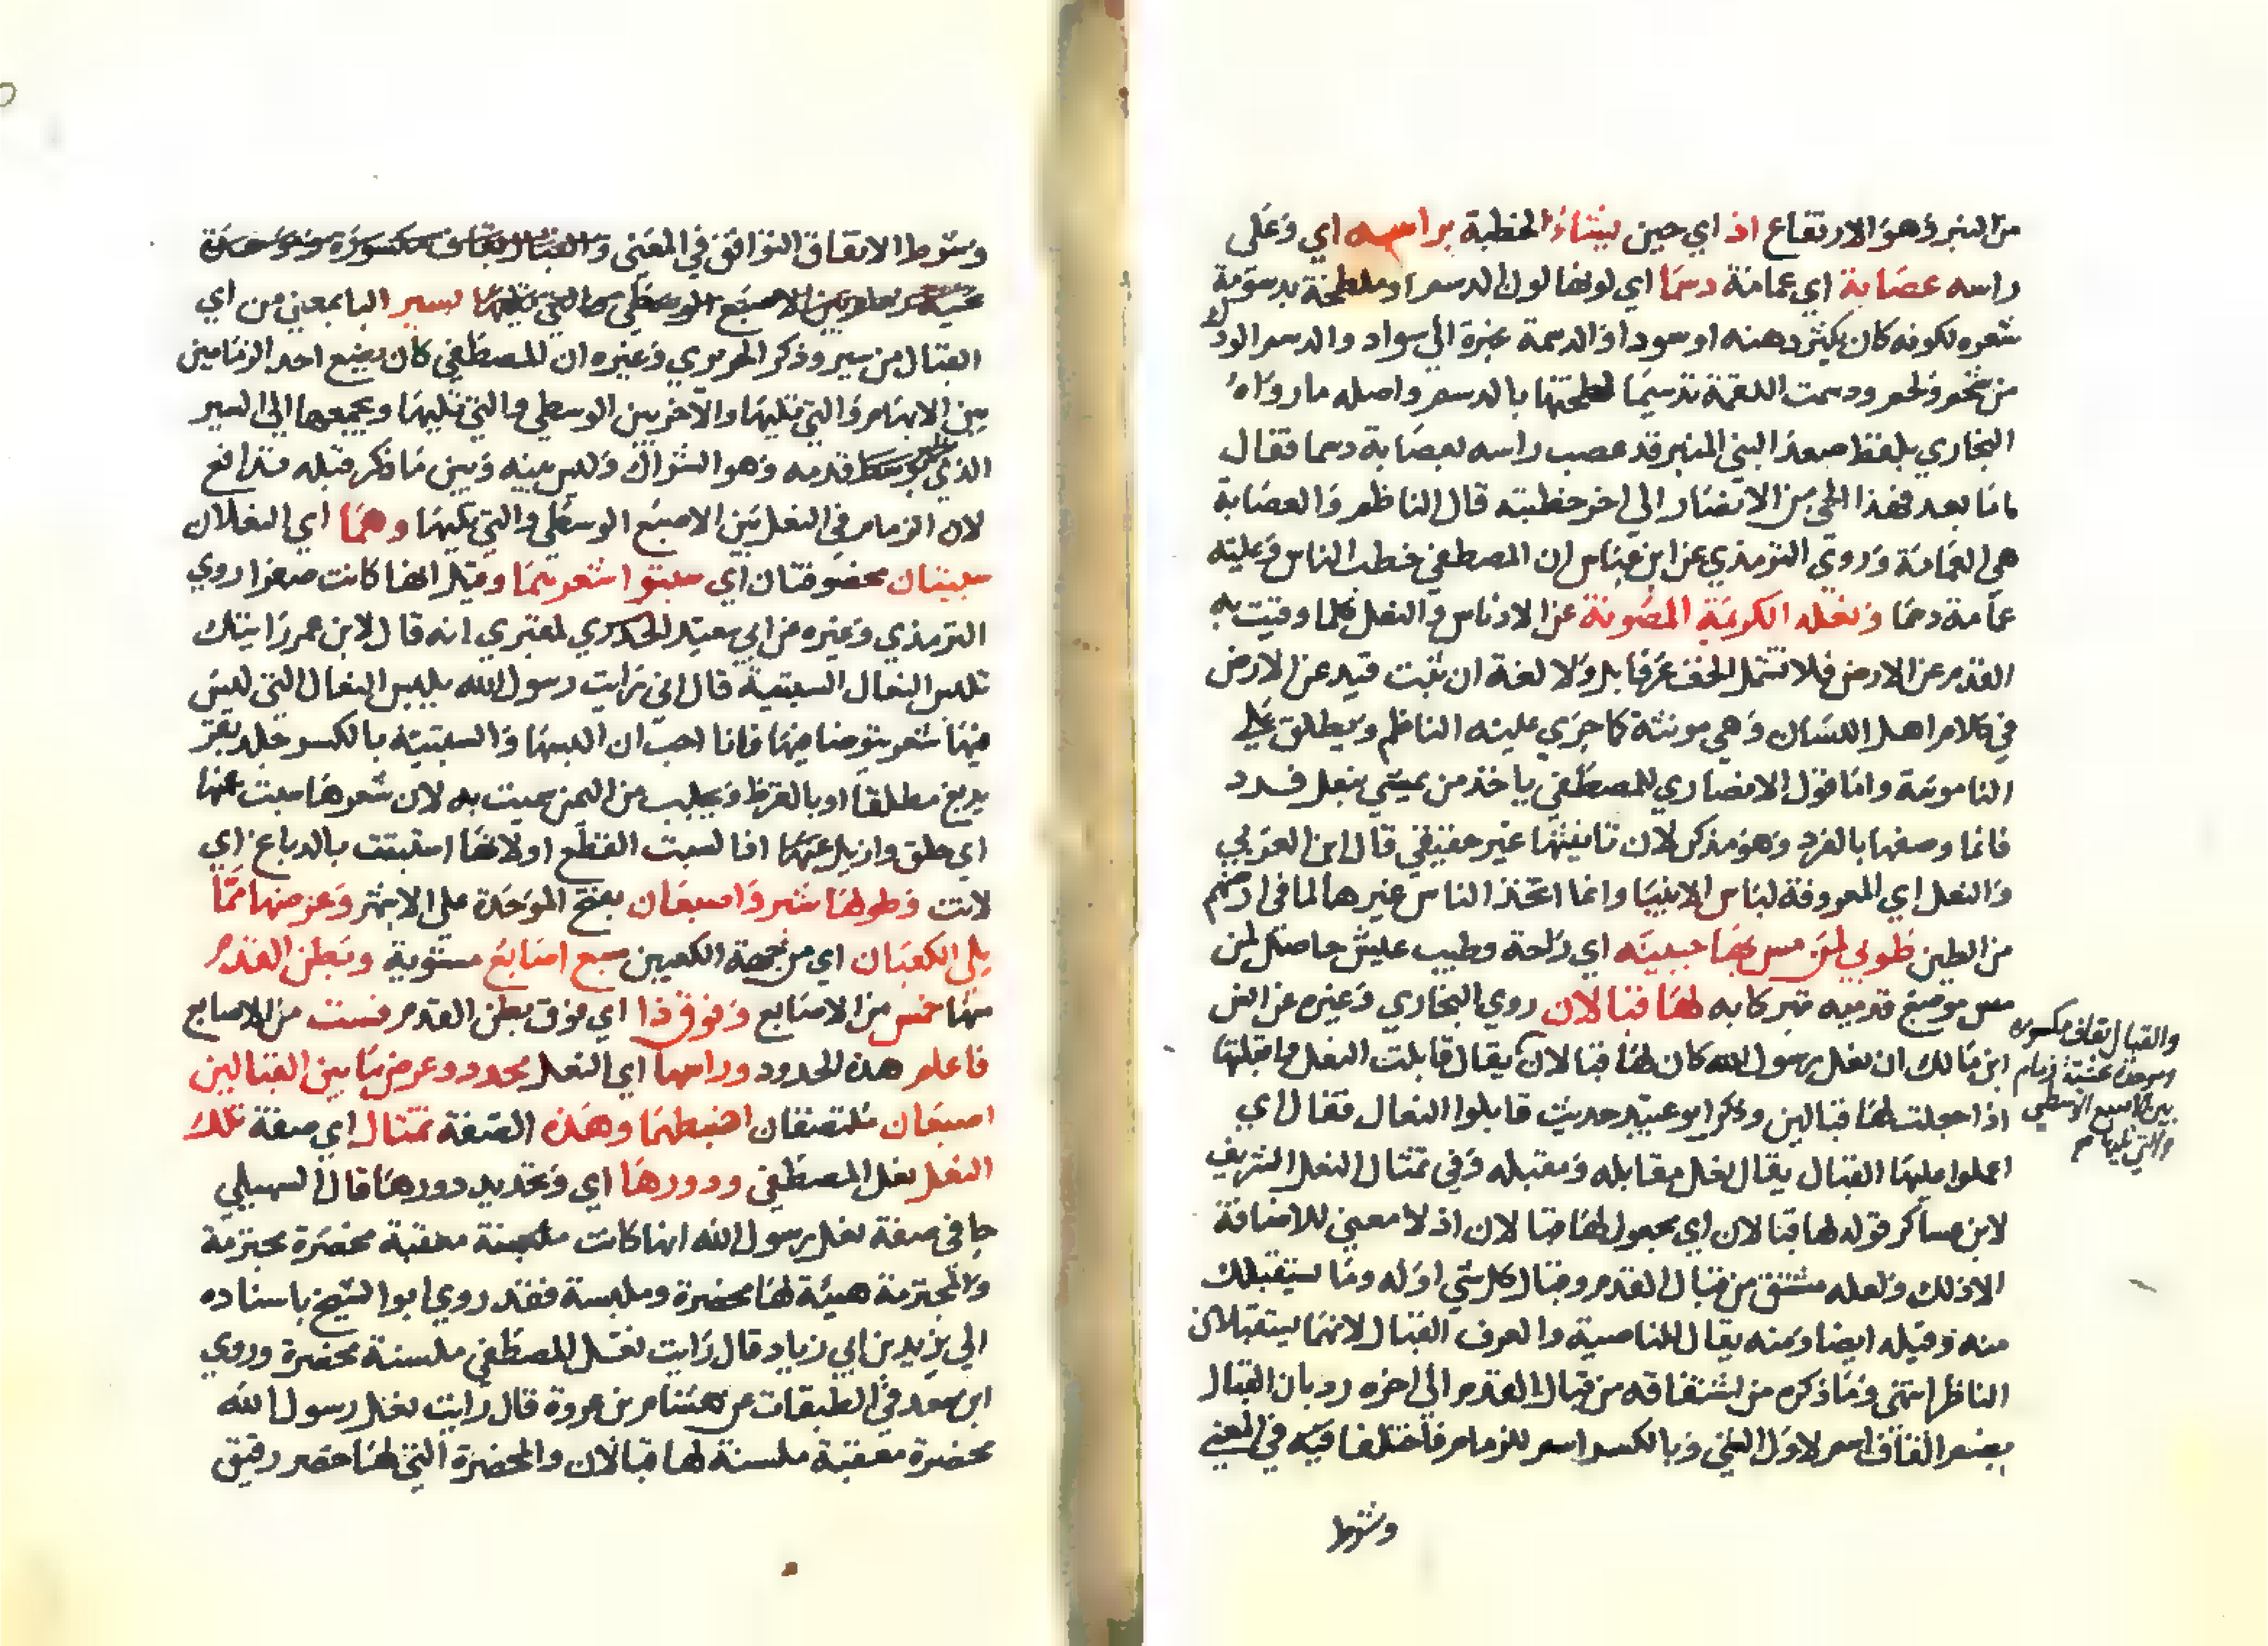 من المنبر وهو الارتقاع اذ اي حين ينشاء الخطبة براسه اي وعلى
راسه عصابة اي عمامة دسما اي لونها لون الدسم او ملطخة بدسومة
شعره لكونه كان يكثر دهنه او سودا اذ الدسمة غبرة الي سواد والدسم الودك
من شحم ولحم ودسمت اللقمة تدسيما لطختها بالدسم واصله ما رواه
البخاري بلفظ صعد النبي المنبر قد عصب راسه بعصابة دسما فقال
اما بعد فهذا الحي من الانصار الي اخر خطبته قال الناظم والعصابة
هي العمامة وروي الترمذي عن ابن عباس ان المصطفي خطب الناس وعليه
عمامة دسما ونعله الكريمة المصونة عن الادناس والنعل كلما وقيت به
القدم عن الارض فلا تشمل الخف عرفا بل ولا لغة ان ثبت قيد عن الارض
في كلام اهل اللسان وهي مونثة كما جري عليه الناظم ويطلق علي
التاموسة واما قول الانصاري للمصطفي يا خذ من يمشي بنعل فرد
فانما وصفها بالفرد وهو مذكر لان تانيثها غير حقيقي قال ابن العربي
والنعل اي المعروفة لباس الانبيا وانما اتخذ الناس غيرها لما في ارضهم
من الطين طوبي لمن مس بها جبينه اي راحة وطيب عيش حاصل لمن
مس موضع قدميه تبركا به لها قبالان روي البخاري وغيره عن انس
ابن مالك ان نعل رسول الله كان لها قبالان يقال قابلت النعل واقبلتها
اذا جعلت لها قبالين وذكر ابو عبيد حديث قابلوا النعال فقال اي
اعملوا عليها القبال يقال نعل مقابله ومقبله وفي تمثال النعل الشريف
لابن عساكر قوله لها قبالان اي مجعول لها قبالان اذ لا معني للاضافة
الا ذلك ولعله مشتق من قبال القدم وقبال كل شي اوله وما يستقبلك
منه وقيله ايضا ومنه يقال للناصية والعرف القبال لانهما يستقبلان
الناظر انتهي وما ذكره من اشتقاقه من قبال القدم الي اخره رد بان القبال
بضم القاف اسم لاول الشي وبالكسر اسم للزمام فاختلفا فيه في المعني
والقبال بقاف مكسورة
وموحدة تحتية زمام
بين الاصبع الوسطي
والتي تليها
وشرط
وشرط الاتفاق التوافق في المعني والقبال بقاف مكسورة وموحدة
تحتية زمام بين الاصبع الوسطي والتي تليها بسير البا بمعني من اي
القبال من سير وذكر الحريري وغيره ان المصطفي كان يضع احد الزمامين
بين الابهام والتي تليها والآخر بين الوسطي والتي تليها ويجمعها الي السير
الذي بظهر قدمه وهو الشراك وليس بينه وبين ما ذكر قبله تدافع
لان الزمام في النعل بين الاصبع الوسطي والتي تليها وهما اي النعلان
سبتيتان مخصوفتان اي سبتوا شعرهما وقيل انها كانت صفرا روي
الترمذي وغيره عن ابي سعيد الخدري المقبري انه قال لابن عمر رايتك
تلبس النعال السبتية قال اني رايت رسول الله يلبس النعال التي ليس
فيها شعر ويتوضا فيها فانا احب ان البسها والسبتية بالكسر جلد بقر
يدبغ مطلقا او بالقرظ ويجلب من اليمن سميت به لان شعرها سبت عنها
اي حلق وازيل عنها اذا لسبت القطع او لانها استبقت بالدباغ اي
لانت وطولها شبر واصبعان بفتح الموحدة علي الاشهر وعرضها مما
يلي الكعبان اي من جهة الكعبين سبع اصابع مستوية وبطن القدم
منها خمس من الاصابع وفوق ذا اي فوق بطن القدم فست من الاصابع
فاعلم هذه الحدود وراسها اي النعل محدد وعرض ما بين القبالين
اصبعان ملتصقان اضبطهما وهذه الصفة تمثال اي صفة تلك
النعل نعل المصطفي ودورها اي وتحديد دورها قال السهيلي
جا في صفة نعل رسول الله انها كانت ملسنة معقبة مخصرة مخترمة
والمخترمة هيئة لها مخصرة وملسنة فقد روي ابوا الشيخ باسناده
الي يزيد بن ابي زياد قال رايت نعل المصطفي ملسنة مخصرة وروي
ابن سعد في الطبقات عن هشام بن عروة قال رايت نعل رسول الله
مخصرة معقبة ملسنة لها قبالان والمخصرة التي لها خصر رقيق